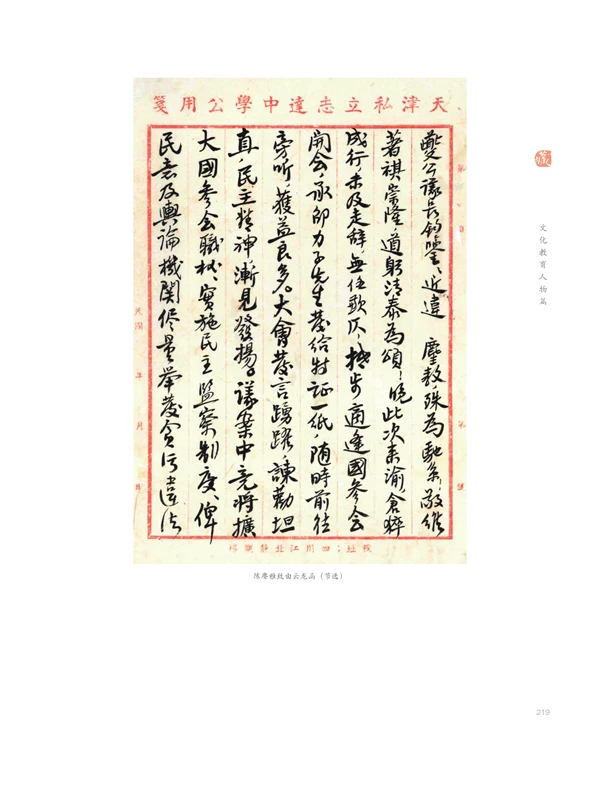 天津私立志達中學公用箋
夔公議長鈞鑒、近違 麈教殊為馳系、敬維
著祺崇隆、道躬清泰為頌、晚此次來渝、倉猝
成行、未及走辭、無任歉仄、抵步適逢國參會
開會、承邵力子先生發給特証一紙、隨時前往
旁听、獲益良多。大會發言踴躍、諫勸坦
真、民主精神、漸見發揚。議案中竟將擴
大國參會職权、實施民主監察制度、俾
民意及輿論機關儘量舉發貪污違法
民國 年 月 日
校址：四川江北靜觀場
陈赓雅致由云龙函（节选）
文化教育人物篇
219